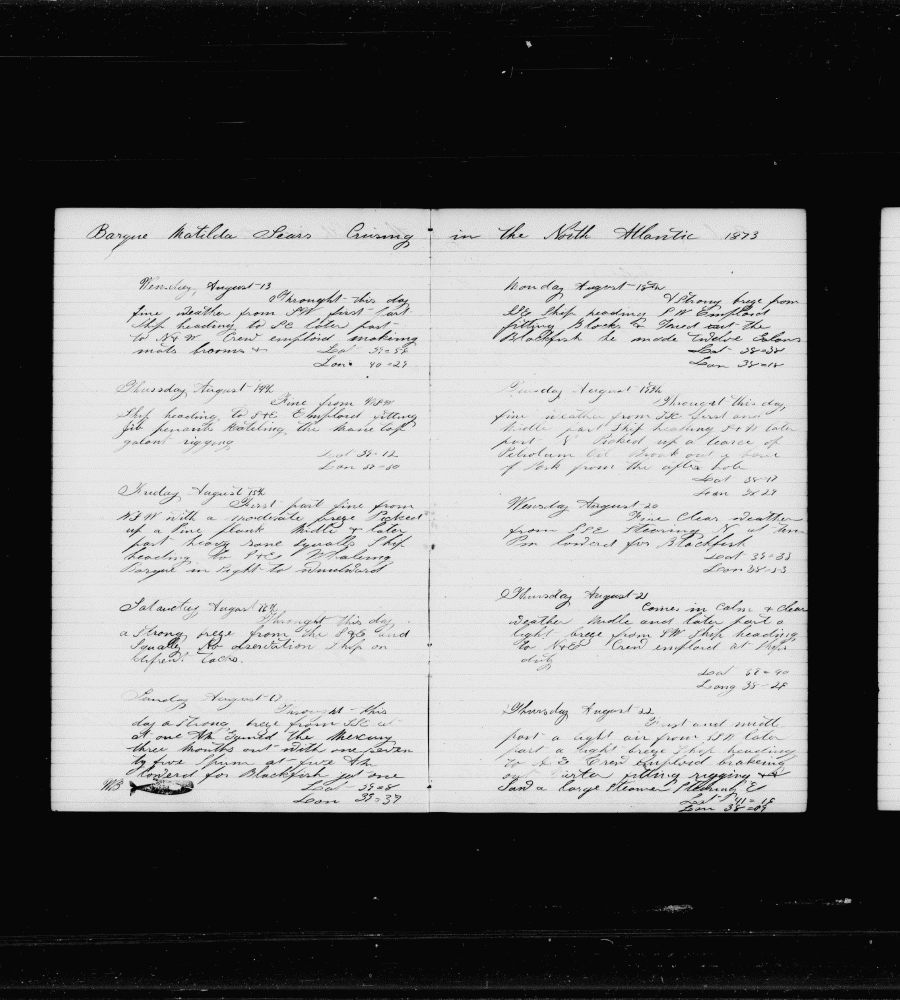 Barque Matilda Sears Cruising in the North Atlantic 1873
Wensday, August 13
Throught this day
fine weather from SW first part
Ship heading to SE later part
to N & W Crew emploid making
mats brooms &
Lat 39=52
Lon 40=29
Thursday August 14th
Fine from
Ship heading to S & E Emploid fitting
gib penants Ratteling the mane top
galant rigging
Lat 39=12
Lon
Friday August 15th
First part fine from
WSW with a moderate brege Picked
up a Pine Plank Midle & later
part heavy some squalls Ship
heading to S & E Whaling
Barque in Sight to windward
Satarday August 16th
Throught this day
a Strong brege from the S & E and
Squally No observation Ship on
difrent tacks.
Sunday August 17
Throught this
day a Strong brege from SSE at
at one Pm Gamed the Mercury
three months out with one seven
ty five Spurm at five Pm
lowered for Blackfish got one
Lat 39=8
Lon 39=37
Monday August 18th
A Strong brege from
SSE Ship heading SW Emploid
fitting Blocks & Tored out the
Blackfish he made twelve Galons
Lat 38=38
Lon 38=18
Tuesday August 19th
Throught this day
fine weather from SE first and
Midle part Ship heading S & W later
part N Picked up a tearce of
Petrolum Oil Broak out a barel
of Pork from the after hole
Lat 38-17
Lon 38 29
Wensday August 20
Fine Clear weather
from SSE Steering N at ten
Pm lowered for Blackfish
Lat 39=33
Lon 38-53
Thursday August 21
Comes in Calm & Clear
weather Midle and later part a
light brege from SW Ship heading
to N & E Crew emploid at Ships
duty
Lat
Long 38-28
Thursday August 22
First and midle
part a light air from SSW later
part a light brege Ship heading
to S E Crew emploid brakeing
out water fitting rigging &
Saw a large Steamer Steering E
Lat 41=18
Lon 38=09